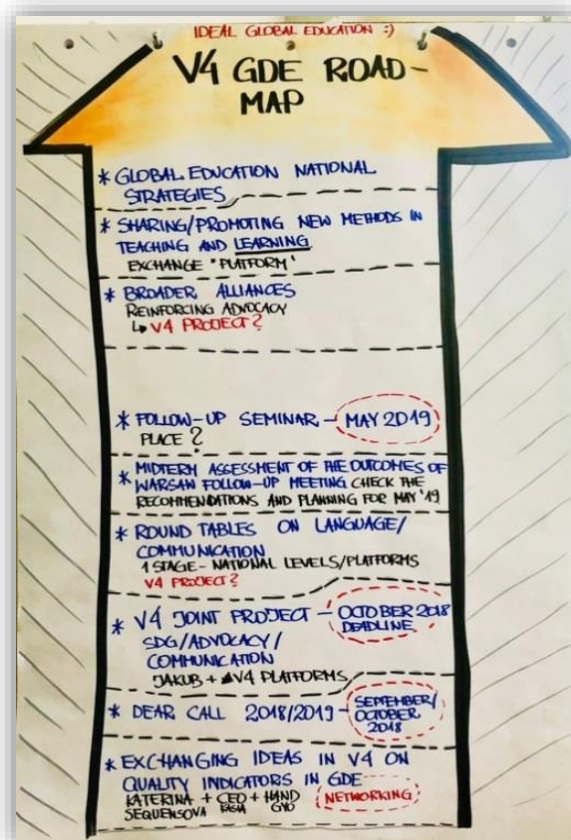 IDEAL GLOBAL EDUCATION :)
V4 GDE ROAD-
MAP
* GLOBAL EDUCATION NATIONAL
STRATEGIES
* SHARING/PROMOTING NEW METHODS IN
TEACHING AND LEARNING
EXCHANGE "PLATFORM"
* BROADER ALLIANCES
REINFORCING ADVOCACY
↳ V4 PROJECT?
* FOLLOW-UP SEMINAR - MAY 2019
PLACE?
* MIDTERM ASSESSMENT OF THE OUTCOMES OF
WARSAW FOLLOW-UP MEETING CHECK THE
RECOMMENDATIONS AND PLANNING FOR MAY '19
* ROUND TABLES ON LANGUAGE/
COMMUNICATION
1 STAGE - NATIONAL LEVELS/PLATFORMS
V4 PROJECT?
* V4 JOINT PROJECT - OCTOBER 2018
DEADLINE
SDG/ADVOCACY/
COMMUNICATION
JAKUB + V4 PLATFORMS
* DEAR CALL 2018/2019 - SEPTEMBER/
OCTOBER
2018
* EXCHANGING IDEAS IN V4 ON
QUALITY INDICATORS IN GDE
KATERINA + CEO + HAND NETWORKING
SEQUENSOVA KASIA GYO